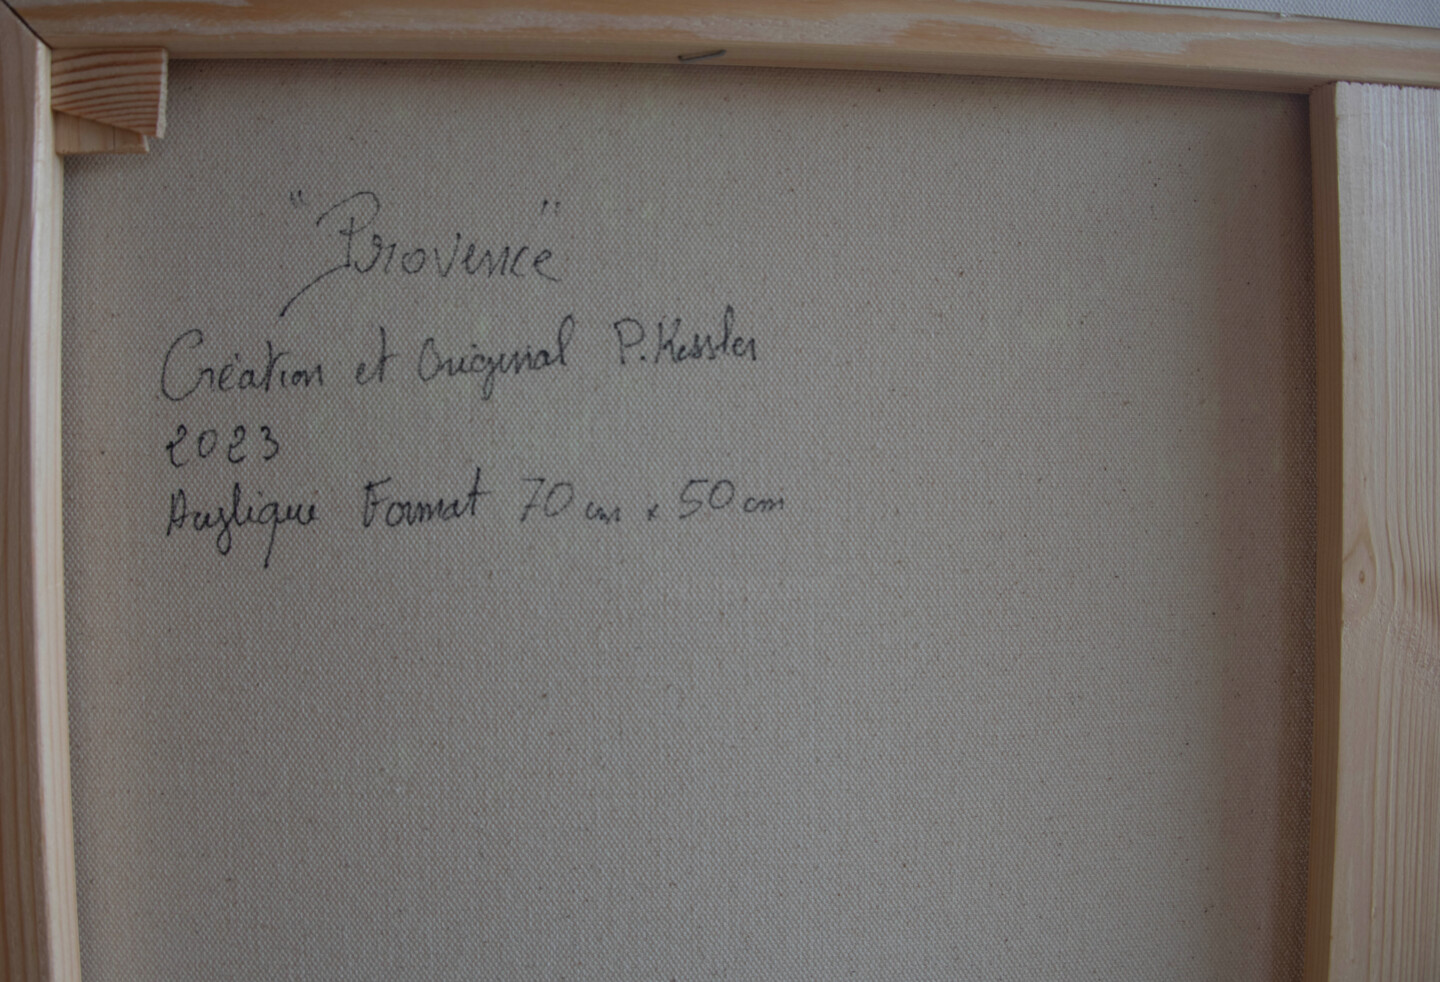 "Provence"
Création et Original P. Kessler
2023
Acrylique Format 70 cm x 50 cm